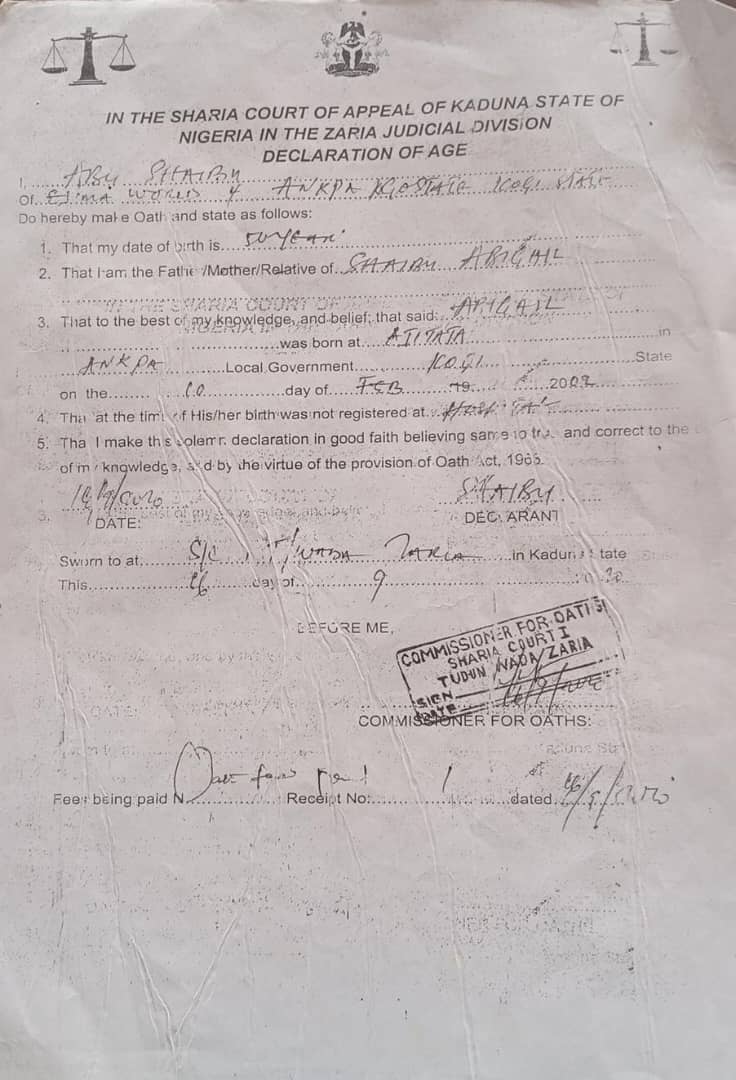 IN THE SHARIA COURT OF APPEAL OF KADUNA STATE OF
NIGERIA IN THE ZARIA JUDICIAL DIVISION
DECLARATION OF AGE
I, ABU SHAIBU
Of EJIMA WORLD ANKPA KOGI STATE
Do hereby make Oath and state as follows:
1. That my date of birth is 50 YEARS
2. That I am the Father/Mother/Relative of SHAIBU ABIGAIL
3. That to the best of my knowledge, and belief; that said: ABIGAIL
was born at in
ANKPA Local Government KOGI State
on the 10 day of FEB 19 2002
4. That at the time of His/her birth was not registered at HOSPITAL
5. That I make this solemn declaration in good faith believing same to true and correct to the
of my knowledge, and by the virtue of the provision of Oath Act, 1963.
16/9/2020 SHAIBU
DATE: DECLARANT
Sworn to at S/C T/WADA ZARIA in Kaduna State
This 16 day of 9 2020
BEFORE ME,
COMMISSIONER FOR OATHS
SHARIA COURT I
TUDUN WADA ZARIA
SIGN
DATE 16/9/2020
COMMISSIONER FOR OATHS:
Fees being paid N Receipt No: dated 16/9/2020